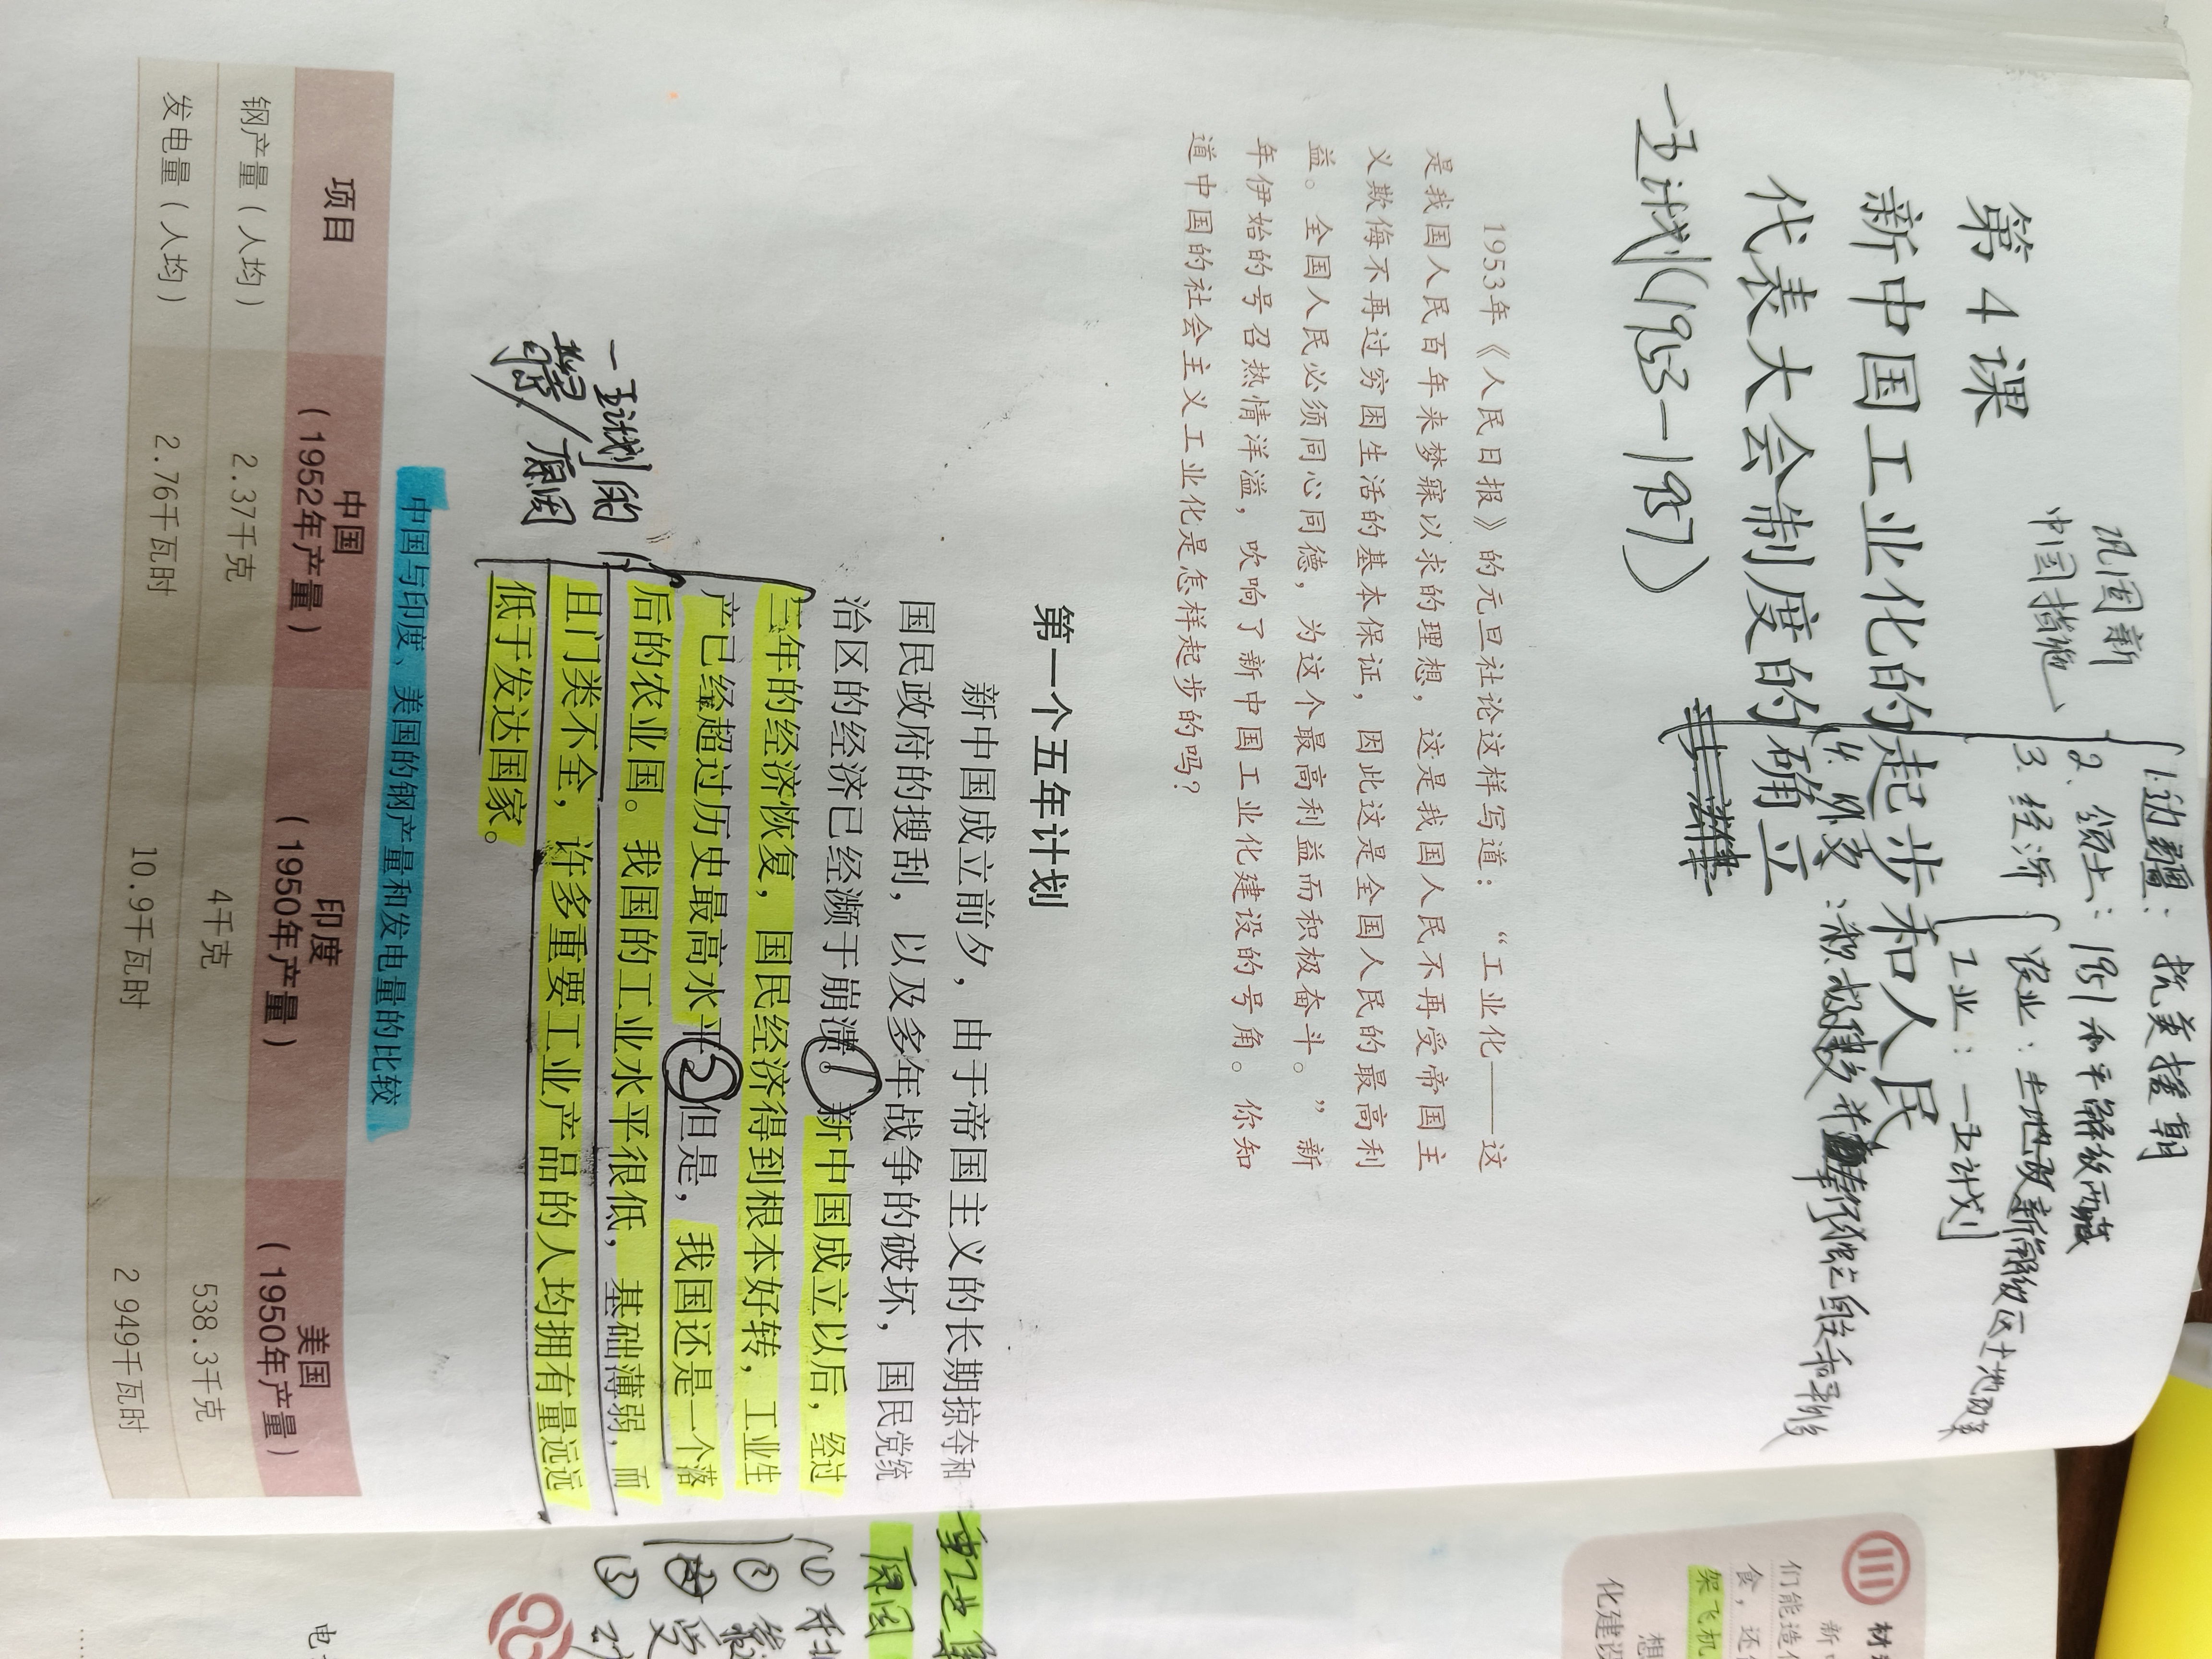 巩固新
中国措施
1.边疆：抗美援朝
2.领土：1951和平解放西藏
3.经济
农业：土地改革
工业：一五计划
第4课
新中国工业化的起步和人民
代表大会制度的确立
一五计划(1953-1957)
1953年《人民日报》的元旦社论这样写道：“工业化——这
是我国人民百年来梦寐以求的理想，这是我国人民不再受帝国主
义欺侮不再过穷困生活的基本保证，因此这是全国人民的最高利
益。全国人民必须同心同德，为这个最高利益而积极奋斗。”新
年伊始的号召热情洋溢，吹响了新中国工业化建设的号角。你知
道中国的社会主义工业化是怎样起步的吗？
第一个五年计划
新中国成立前夕，由于帝国主义的长期掠夺和
国民政府的搜刮，以及多年战争的破坏，国民党统
治区的经济已经濒于崩溃。①新中国成立以后，经过
三年的经济恢复，国民经济得到根本好转，工业生
产已经超过历史最高水平②但是，我国还是一个落
后的农业国。我国的工业水平很低，基础薄弱，而
且门类不全，许多重要工业产品的人均拥有量远远
低于发达国家。
一五计划的
背景/原因
中国与印度、美国的钢产量和发电量的比较
项目 中国（1952年产量） 印度（1950年产量） 美国（1950年产量）
钢产量（人均） 2.37千克 4千克 538.3千克
发电量（人均） 2.76千瓦时 10.9千瓦时 2 949千瓦时
原因
材
新
们能造
食，还
架飞机
想
化建设
电